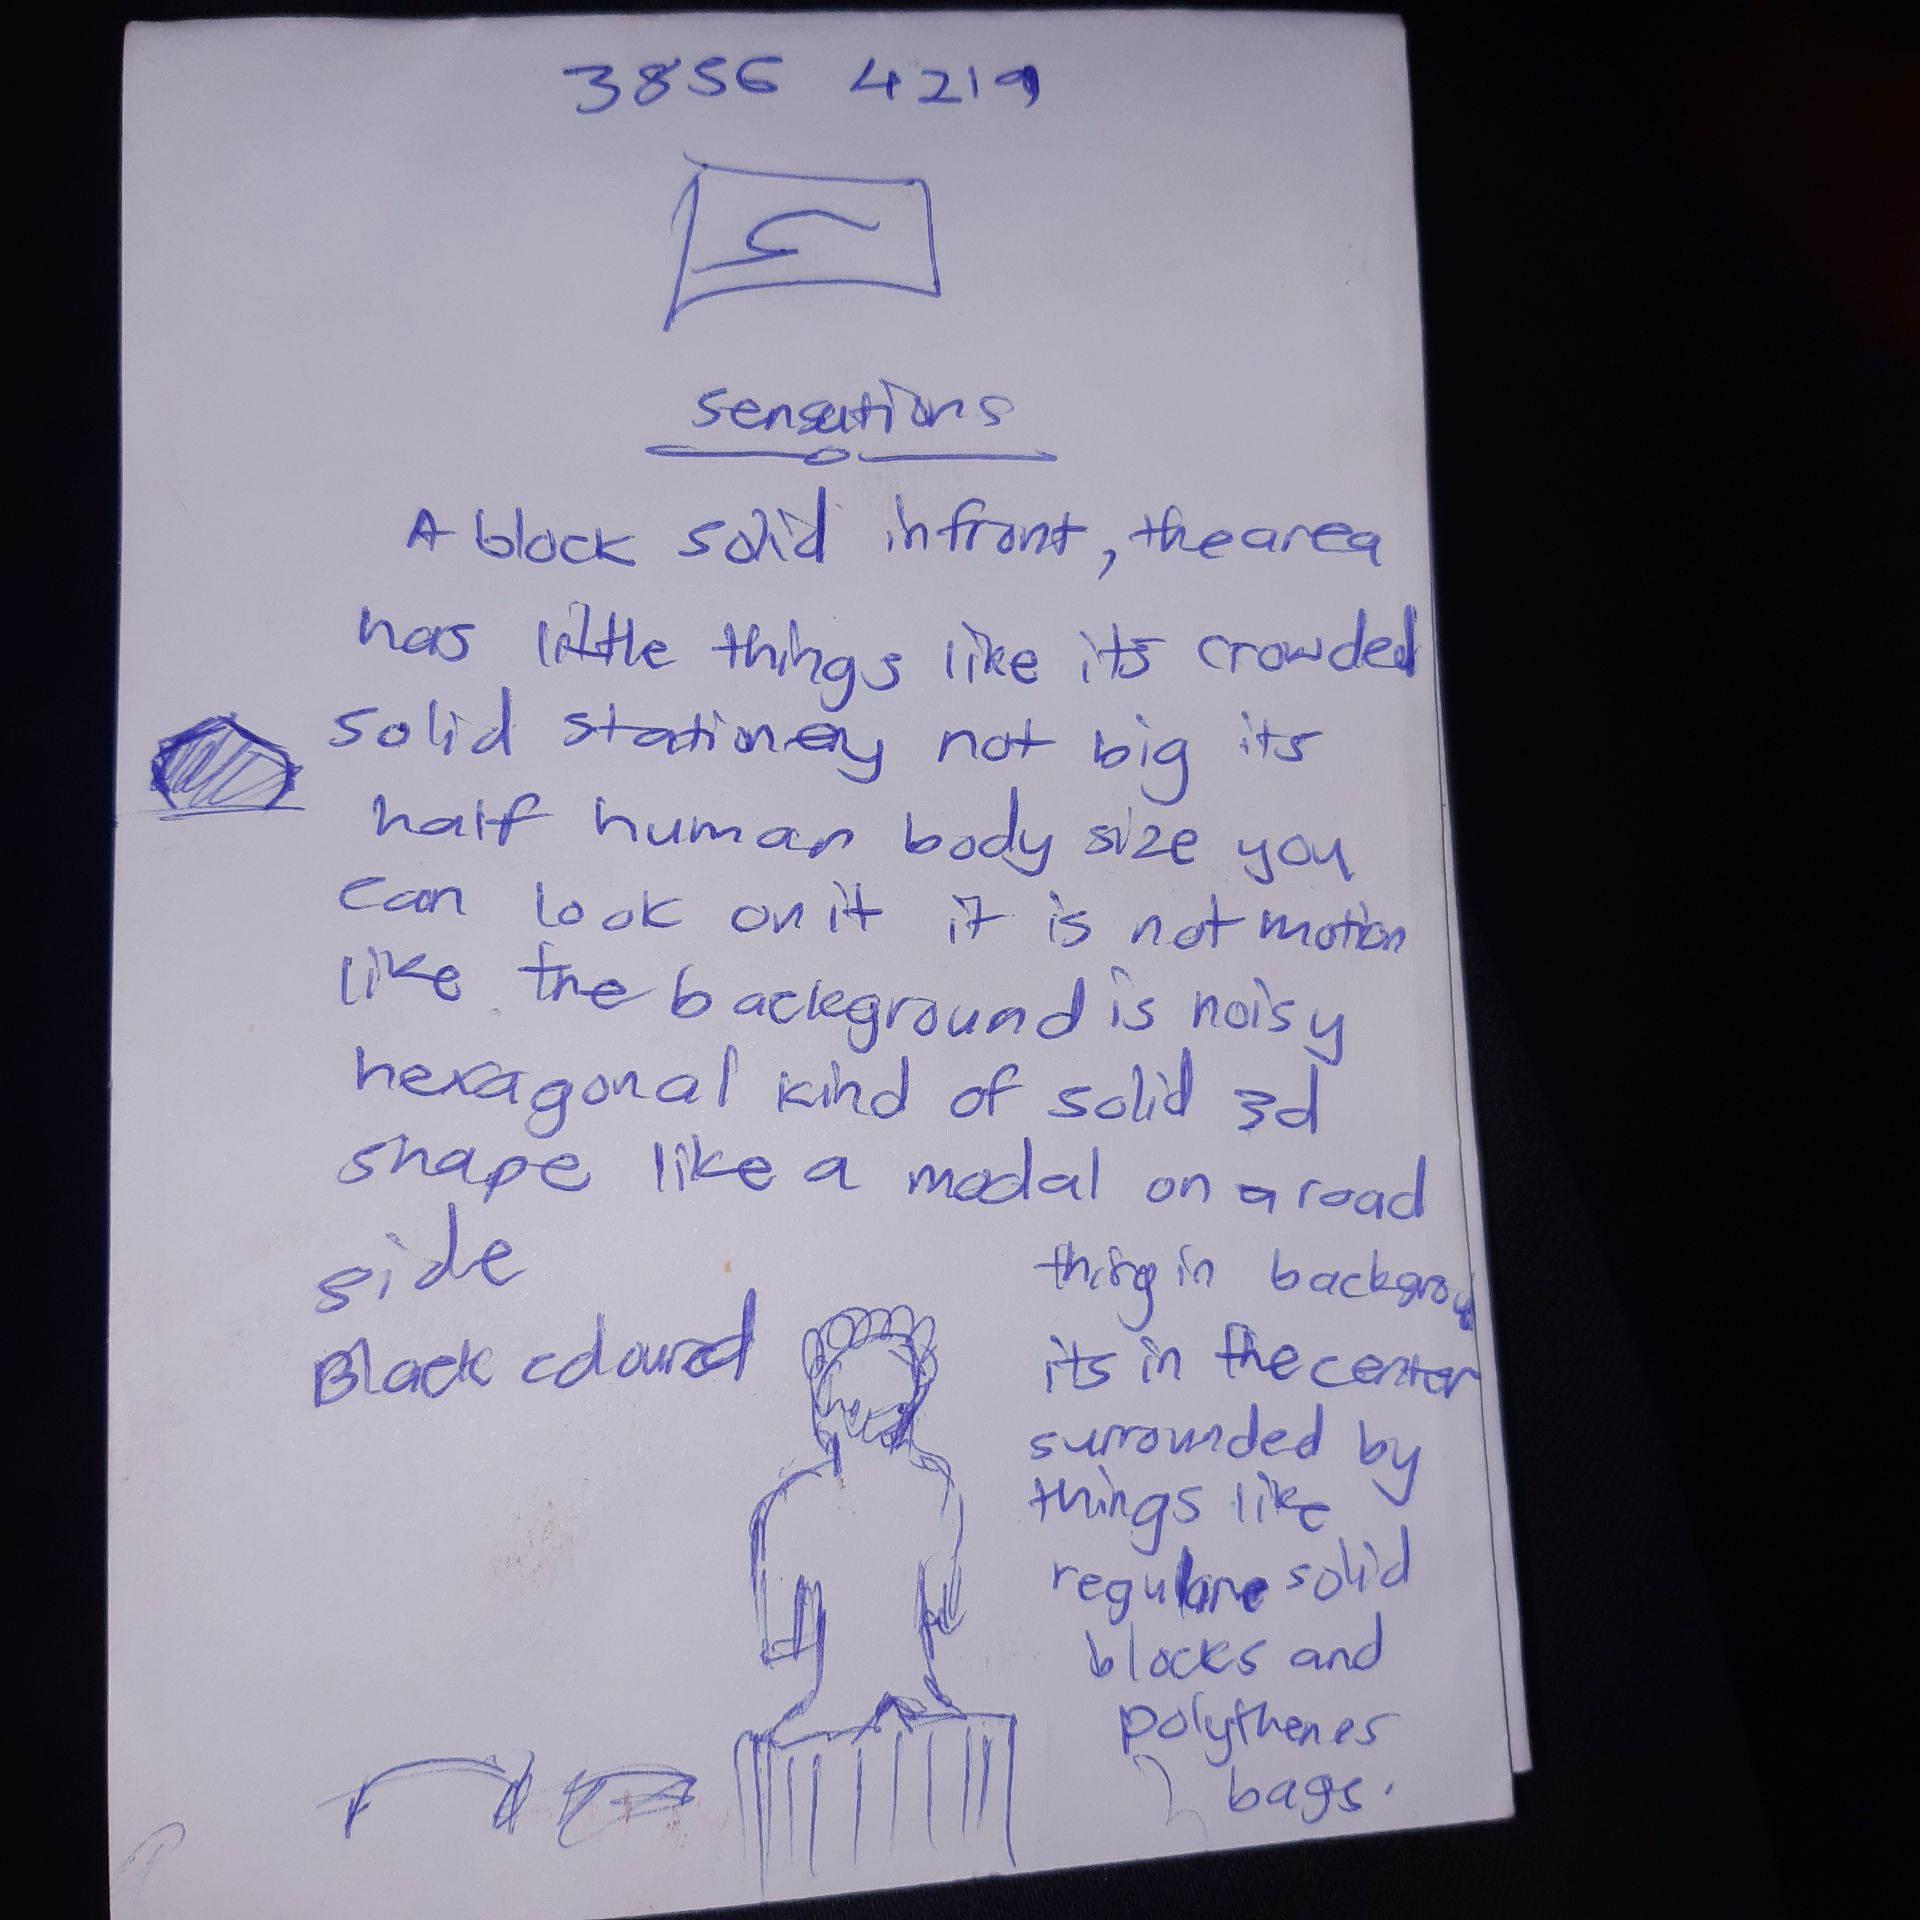 3856 4219
sensations
A block solid infront, the area
has little things like its crowded
solid stationey not big its
half human body size you
can look on it it is not motion
like the background is noisy
hexagonal kind of solid 3d
shape like a modal on a road
side
Black coloured
thing in backgrou
its in the center
surrounded by
things like
regulare solid
blocks and
polythenes
bags.